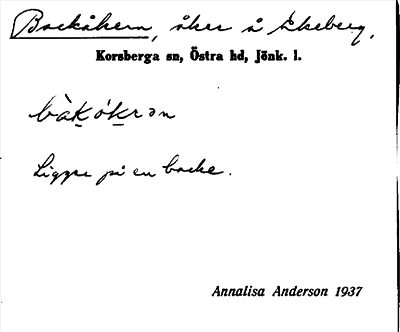 Backåkern, åker å Ekeberg,
Korsberga sn, Östra hd, Jönk. l.
bàḵóḵrən
Ligger på en backe.
Annalisa Anderson 1937